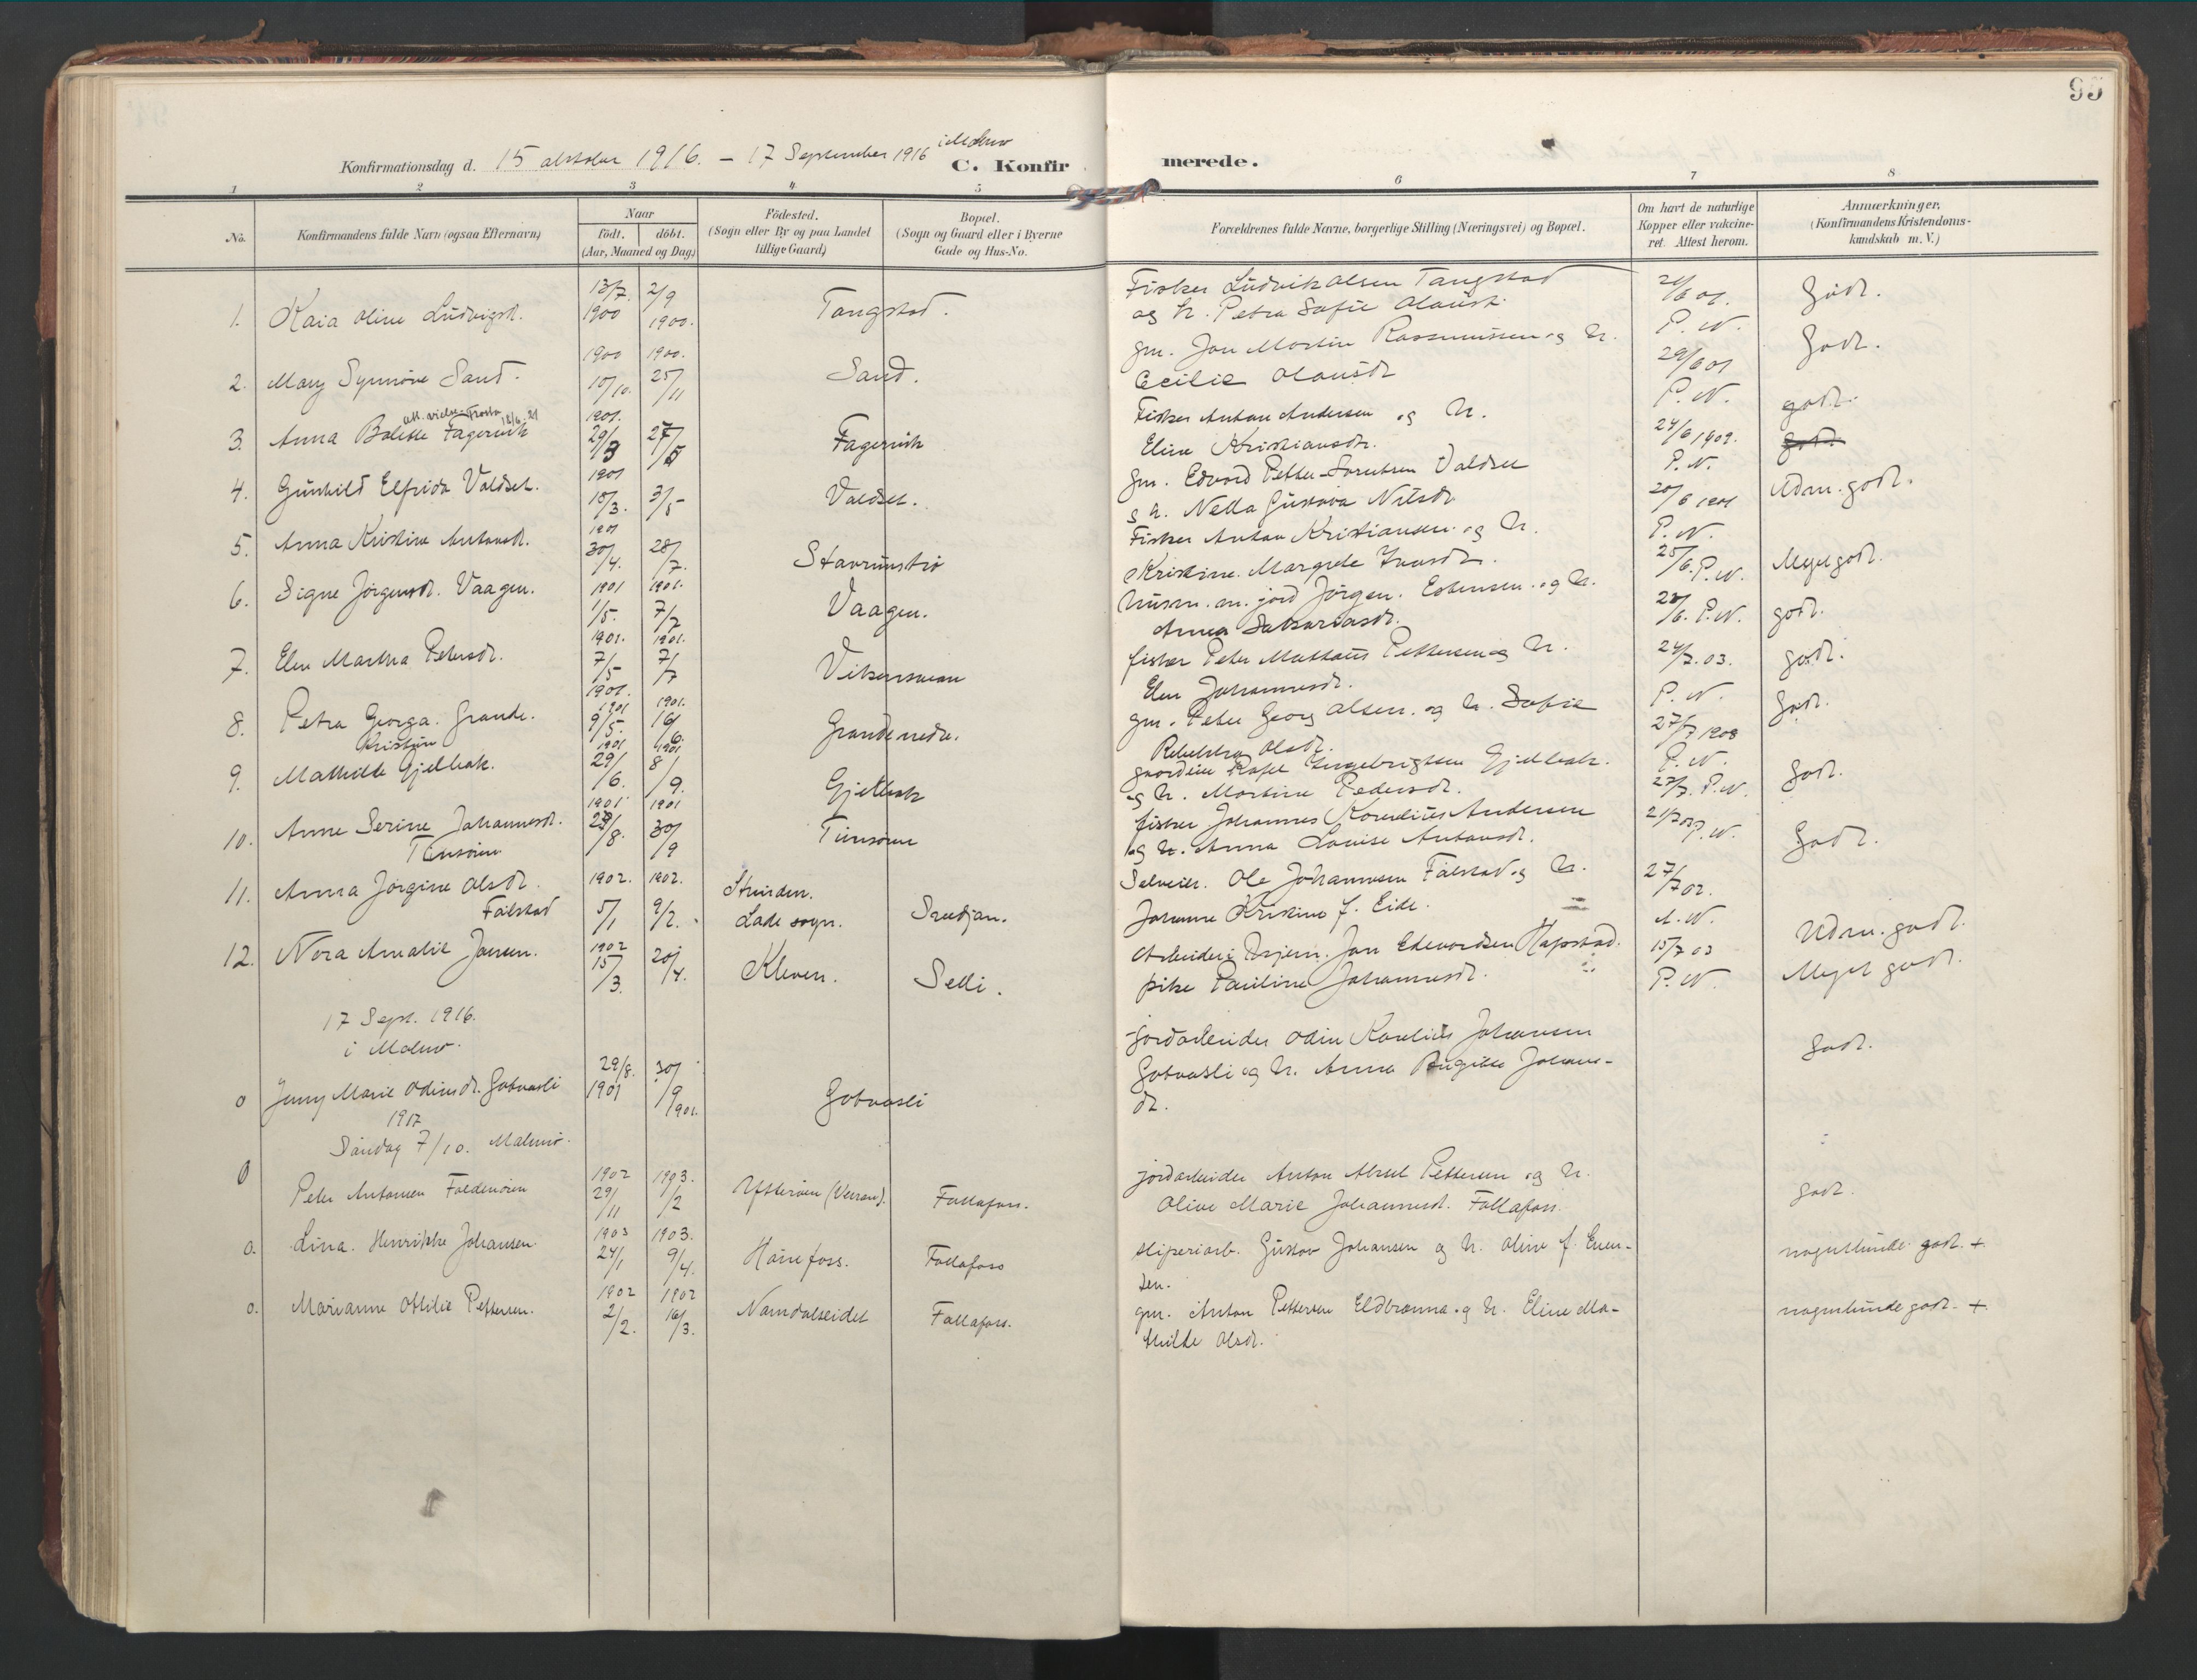 95
Konfirmationsdag d. 15 oktober 1916. – 17 September 1916 i Malmo
C. Konfirmerede.
1 2 3 4 5 6 7 8
No.
Konfirmandens fulde Navn (ogsaa Efternavn)
Naar
födt. döbt.
(Aar, Maaned og Dag)
Födested.
(Sogn eller By og paa Landet
tillige Gaard)
Bopæl.
(Sogn og Gaard eller i Byerne
Gade og Hus-No.
Forældrenes fulde Navne, borgerlige Stilling (Næringsvei) og Bopæl.
Om havt de naturlige
Kopper eller vakcine-
ret. Attest herom.
Anmærkninger.
(Konfirmandens Kristendoms-
kundskab m. V.)
1. Kaia Oline Ludvigsd. 13/7 1900 2/9 1900. Tangstad. Fisker Ludvik Olsen Tangstad
og h. Petra Sofie Olausd. 21/6 01. P. N. Godt.
2. Mary Synnöve Sand. 1900 15/10. 1900. 25/11 Sand. gm. Jon Martin Rasmussen og h.
Cecilie Olausdr 29/6 01 P. N. Godt.
3. Anna Bolette Fagervik 1901. 29/3 27/5 Fagervik Fisker Anton Andersen og h.
Eline Kristiansdr. 24/6 1902. P. N. godt.
4. Gunhild Elfrida Valdset. 1901 15/3. 3/5 Valdset. gm. Edvard Petter Lorentsen Valdset
g h. Nella Gustava Nilsdr 20/6 1901 P. N. Udm. godt.
5. Anna Kristine Antonsd. 1901 30/4. 28/7. Stavrunströ Fisker Anton Kristiansen og h.
Kristine Margrete Ivarsdr. 25/6. P. N. Meget godt.
6. Signe Jörgensdr. Vaagen. 1901 1/5. 1901. 7/7 Vaagen. husm. m. jord Jörgen Esbensen og h.
Anna Sakariasdr. 23/6. P. N. godt.
7. Elen Martha Petersdr. 1901. 7/5 1901. 7/7 Viksmoen fisker Peter Mathæus Pettersen og h.
Elen Johannesdr. 24/7. 03. P. N. godt.
8. Petra Georga. Grande. 1901. 9/5. 1901. 16/6. Grande nedre. gm. Peter Georg Olsen. og h. Sofie
Rebekka Olsdr. 27/7 1908 P. N. Godt.
9. Kristine
Mathilde Gjelbak. 1901 29/6. 1901 8/9. Gjelbak gaardeier Rafel Ingebrigtsen Gjelbak.
og h. Martine Pedersdr. 27/7. P. N. Godt.
10. Anne Serine Johannesdr.
Tinsöien 1901 28/8. 1901 30/9 Tinsöien fisker Johannes Kornelius Andersen
og h. Anna Louise Antonsdr. 21/7 02 P. N. Godt.
11. Anna Jörgine Olsdr.
Falstad 1902. 5/1 1902. 9/2. Strinden.
Lade sogn. Snedjan. Selveier. Ole Johannesen Falstad og h.
Johanne Kristine f. Eide. 27/7 02. A. N. Udm. godt.
12. Nora Amalie Jansen. 1902 15/3. 20/4. Kleven. Selli. Arbeider i Mjem. Jon Edvardsen Hopstad.
pike Pauline Johannesdr. 15/7 03 P. N. Meget godt.
17 Sept. 1916.
i Malmo.
o Jenny Marie Odinsdr. Gotvasli 29/8. 1901 30/9 1901. Gotvasli jordarbeider Odin Kornelius Johansen
Gotvasli og h. Anna Birgitte Johans-
dr. Godt.
1917
Söndag 7/10. Malmö.
0 Peter Antonsen Foldenören 1902 29/11 1903. 1/2 Ytteröen (Verran). Follafoss. jordarbeider Anton Aksel Pettersen og h.
Oline Marie Johannesd. Follafoss. godt.
o. Lina. Henrikke Johansen. 1903 24/1 1903. 9/4. Hönefoss. Follafoss sliperiarb. Gustav Johansen og h. Oline f. Even-
sen. nogenlunde godt. +
o. Marianne Ottilie Pettersen. 1902 2/2. 1902 16/3. Namdalseidet Follafoss. gm. Anton Pettersen Eldbrænna og h. Eline Ma-
thilde Olsdr. nogenlunde godt. +